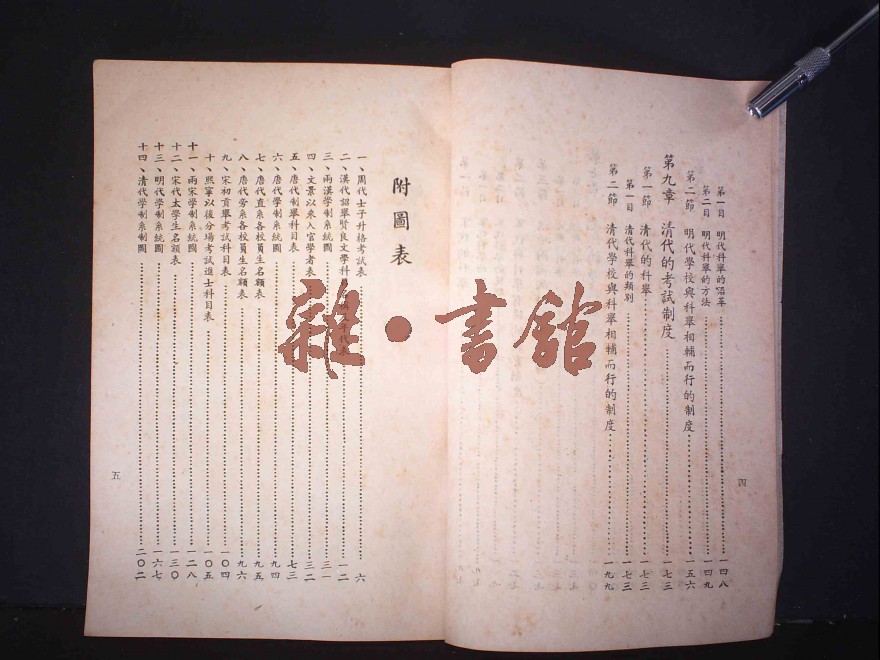 第一目 明代科舉的沿革 一四八
第二目 明代科舉的方法 一四九
第二節 明代學校與科舉相輔而行的制度 一五六
第九章 清代的考試制度 一七三
第一節 清代的科舉 一七三
第一目 清代科舉的類別 一七三
第二節 清代學校與科舉相輔而行的制度 一九九
四
附圖表
一、周代士子升格考試表 六
二、漢代詔舉賢良文學科 年代表 一二
三、兩漢學制系統圖 三一
四、文景以來入官學者表 三二
五、唐代制舉科目表 七三
六、唐代學制系統圖 九四
七、唐代直系各校員生名額表 九五
八、唐代旁系各校員生名額表 九六
九、宋初貢舉考試科目表 一〇四
十、熙寧以後分場考試進士科目表 一〇五
十一、兩宋學制系統圖 一二八
十二、宋代太學生名額表 一三〇
十三、明代學制系統圖 一六七
十四、清代學制系制圖 二〇二
五
雜·書館